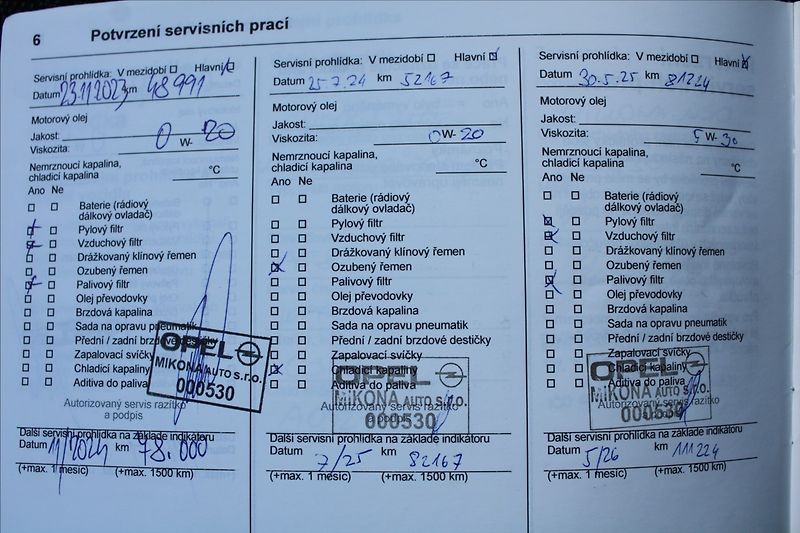 6
Potvrzení servisních prací
Servisní prohlídka: V mezidobí Hlavní
Datum 23.11.2023 km 48 991
Motorový olej
Jakost:
Viskozita: 0 W- 20
Nemrznoucí kapalina,
chladicí kapalina °C
Ano Ne
Baterie (rádiový
dálkový ovladač)
Pylový filtr
Vzduchový filtr
Drážkovaný klínový řemen
Ozubený řemen
Palivový filtr
Olej převodovky
Brzdová kapalina
Sada na opravu pneumatik
Přední / zadní brzdové destičky
Zapalovací svíčky
Chladicí kapaliny
Aditiva do paliva
OPEL
MIKONA AUTO s.r.o.
000530
Autorizovaný servis razítko
a podpis
Další servisní prohlídka na základě indikátoru
Datum 11/2024 km 78.000
(+max. 1 měsíc) (+max. 1500 km)
Servisní prohlídka: V mezidobí Hlavní
Datum 25.7.24 km 52167
Motorový olej
Jakost:
Viskozita: 0 W- 20
Nemrznoucí kapalina,
chladicí kapalina °C
Ano Ne
Baterie (rádiový
dálkový ovladač)
Pylový filtr
Vzduchový filtr
Drážkovaný klínový řemen
Ozubený řemen
Palivový filtr
Olej převodovky
Brzdová kapalina
Sada na opravu pneumatik
Přední / zadní brzdové destičky
Zapalovací svíčky
Chladicí kapaliny
Aditiva do paliva
OPEL
MIKONA AUTO s.r.o.
000530
Autorizovaný servis razítko
a podpis
Další servisní prohlídka na základě indikátoru
Datum 7/25 km 82167
(+max. 1 měsíc) (+max. 1500 km)
Servisní prohlídka: V mezidobí Hlavní
Datum 30.5.25 km 81224
Motorový olej
Jakost:
Viskozita: 5 W- 30
Nemrznoucí kapalina,
chladicí kapalina °C
Ano Ne
Baterie (rádiový
dálkový ovladač)
Pylový filtr
Vzduchový filtr
Drážkovaný klínový řemen
Ozubený řemen
Palivový filtr
Olej převodovky
Brzdová kapalina
Sada na opravu pneumatik
Přední / zadní brzdové destičky
Zapalovací svíčky
Chladicí kapaliny
Aditiva do paliva
OPEL
MIKONA AUTO s.r.o.
000530
Autorizovaný servis razítko
Další servisní prohlídka na základě indikátoru
Datum 5/26 km 111224
(+max. 1 měsíc) (+max. 1500 km)